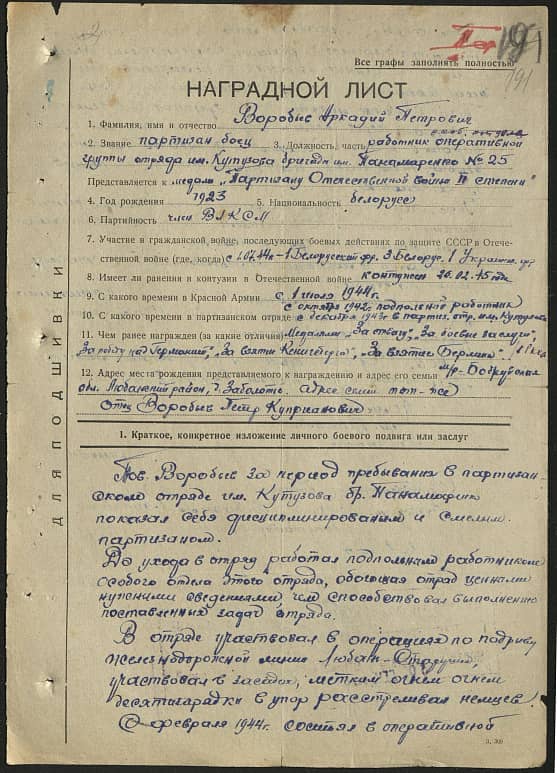 191
191
Все графы заполнять полностью
НАГРАДНОЙ ЛИСТ
1. Фамилия, имя и отчество Воробьев Аркадий Петрович
2. Звание партизан боец 3. Должность, часть работник оперативной
группы отряда им. Кутузова бригады им. Панамаренко № 25
Представляется к медали „Партизану Отечественной войны II степени"
4. Год рождения 1923 5. Национальность белорусс
6. Партийность член ВЛКСМ
7. Участие в гражданской войне, последующих боевых действиях по защите СССР в Отече-
ственной войне (где, когда) с 1.07.44г-1.Белорусский фр. 3 Белорус. 1 Украинс. фр.
8. Имеет ли ранения и контузии в Отечественной войне контужен 26.02.45 года
9. С какого времени в Красной Армии с 1 июля 1944г.
с октября 1942г. подпольный работник
10. С какого времени в партизанском отряде с декабря 1943г в партиз. отр. им. Кутузова
11. Чем ранее награжден (за какие отличия) Медалями „За отвагу", „За боевые заслуги",
„За победу над Германией", „За взятие Кенигсберга", „За взятие Берлина"
12. Адрес места рождения представляемого к награждению и адрес его семьи м/р-Бобруйская
обл. Любанский район, д. Заболотье. адрес семьи тот-же
Отец Воробьев Петр Куприанович
I. Краткое, конкретное изложение личного боевого подвига или заслуг
Тов. Воробьев за период пребывания в партизан-
ском отряде им. Кутузова бр. Панамаренко
показал себя дисциплинированым и смелым
партизаном.
До ухода в отряд работал подпольным работником
особого отдела этого отряда, обогощая отряд ценными
нужными сведениями, чем способствовал выполнению
поставленных задач отряда.
В отряде участвовал в операциях по подриву
железнодорожной линии Любань-Старушки,
участвовал в засадах, метким огнем огнем
десятизарядки в упор расстреливал немцев,
С февраля 1944г. состоял в оперативной
ДЛЯ ПОДШИВКИ